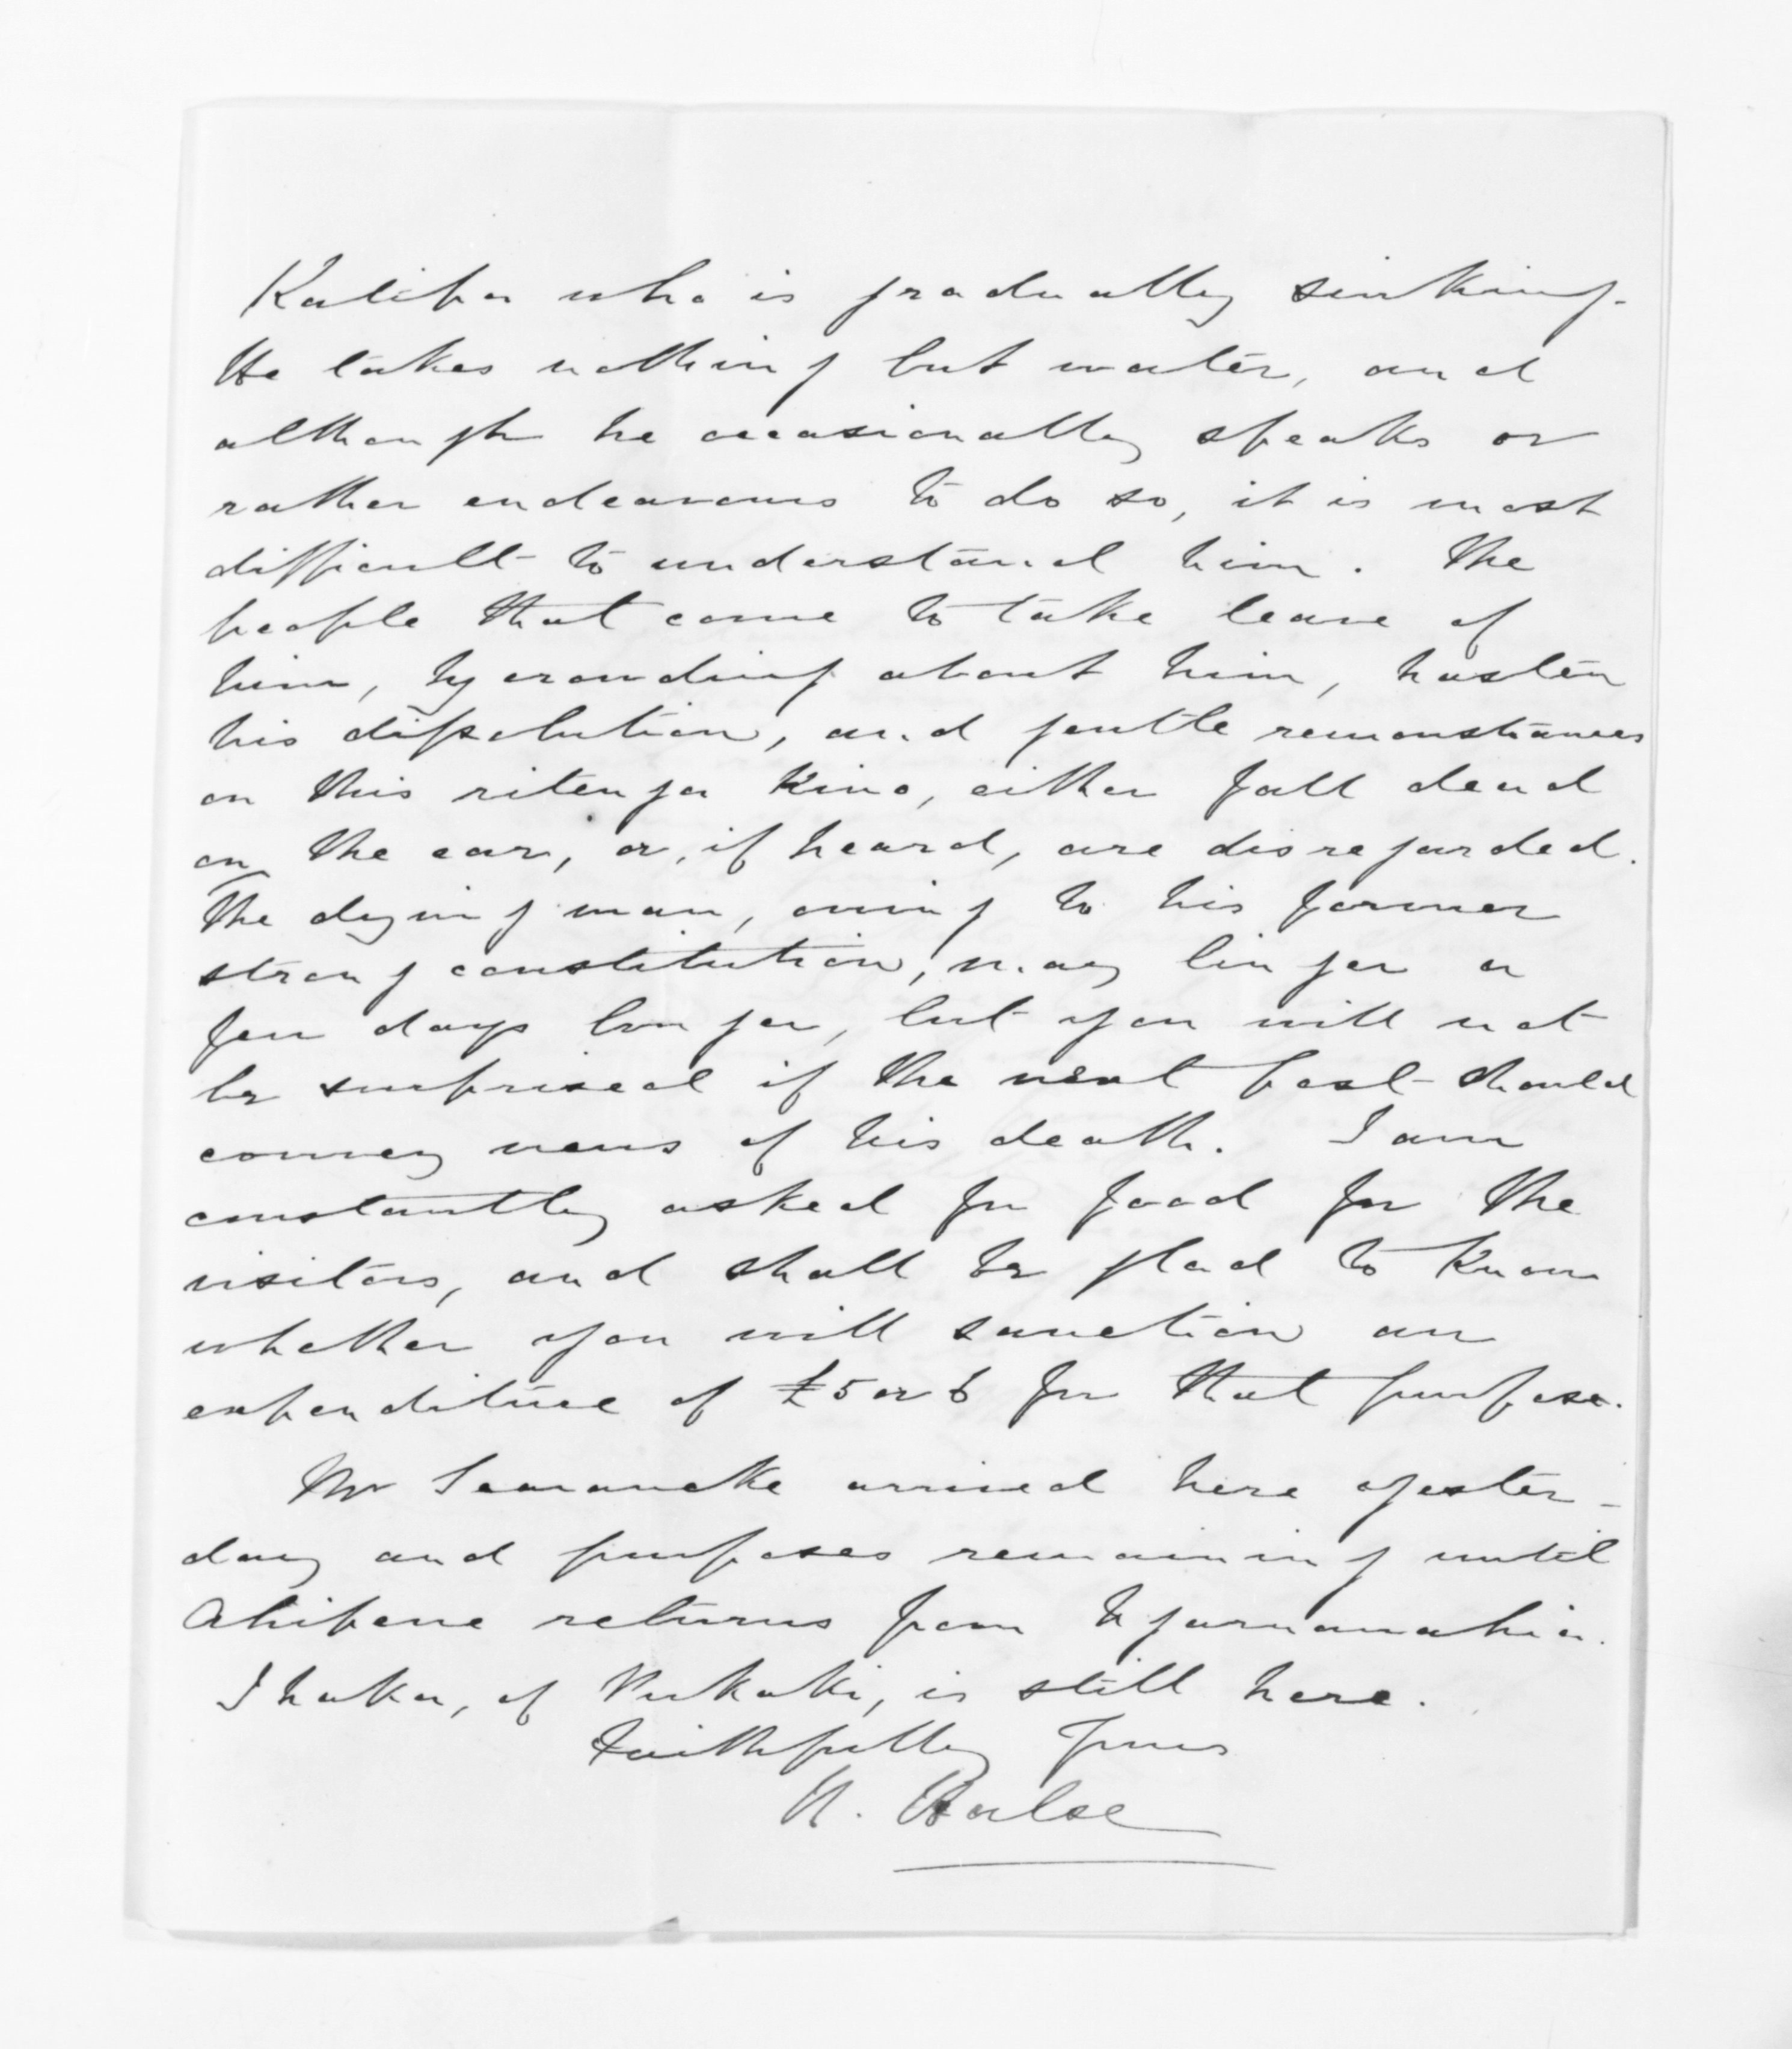 Katipa who is gradually sinking.
He takes nothing but water, and
although he occasionally speaks or
rather endeavours to do so, it is most
difficult to understand him. The
people that come to take leave of
him, by crowding about him, hasten
his dissolution, and gentle remonstrances
on this ritenga kino, either fall dead
on the ear, or, if heard, are disregarded.
The dying man, owing to his former
strong constitution, may linger a
few days longer, but you will not
be surprised if the next post should
convey news of his death. I am
constantly asked for food for the
visitors, and shall be glad to know
whether you will sanction an
expenditure of £5 or 6 for that purpose.
Mr Searancke arrived here yester-
day and purposes remaining until
Ahipene returns from Ngaruawahia.
Ihaka, of Pukaki, is still here.
Faithfully Yours
H. Halse